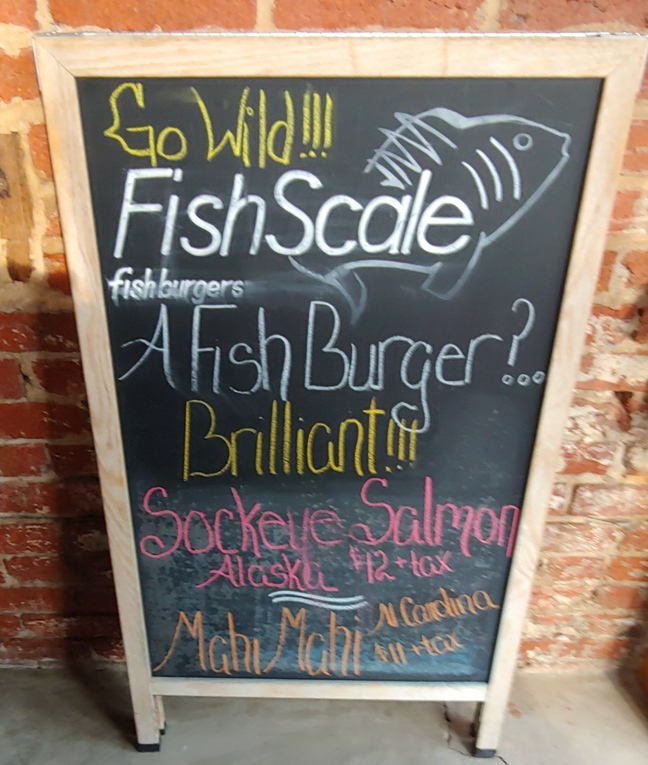 Go Wild!!!
FishScale
fishburgers
A Fish Burger?...
Brilliant!!!
Sockeye Salmon
Alaska $12 + tax
Mahi Mahi N Carolina
$11 + tax